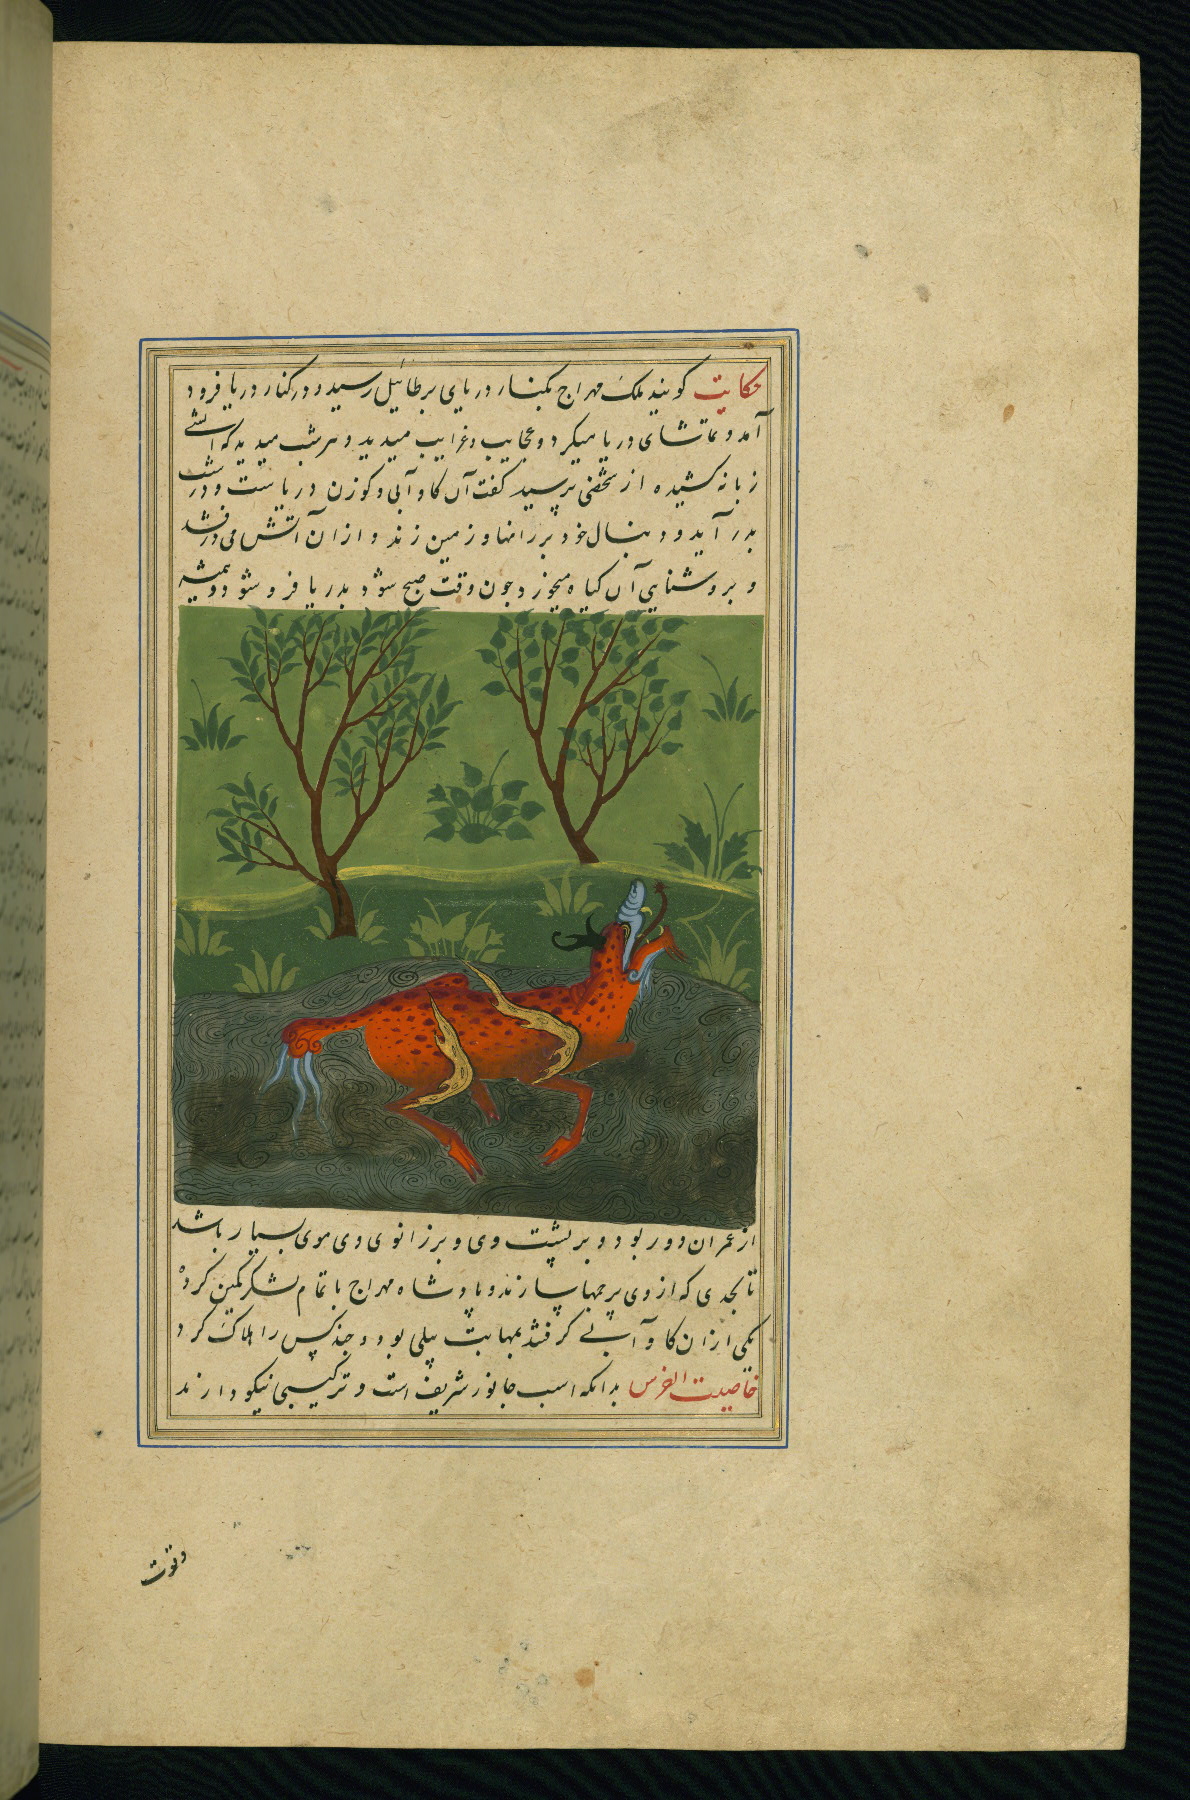 حکایت کویند ملک مهراج بکنار دریای برطائیل رسید و در کنار دریا فرود
آمد و تماشای دریا میکرد و عجایب و غرایب میدید و هر شب میدید که اتشی
زبانه کشیده از شخصی پرسید کفت آن کاو آبی و کوزن دریاست و در شب
بدر آید و دنبال خود بر رانها و زمین زند و از ان آتش می درفشد
و بروشنایی آن کیاه میخورد و جون وقت صبح شود بدریا فرو شود و همیشه
از عمران دور بود و بر پشت وی و بر زانوی وی موی بسیار باشد
تا بحدی که از وی پرجمها سازند و پادشاه مهراج با تمام لشکر کمین کرده
یکی از ان کاو آبی کرفتند بمهابت پیلی بود و جند کس را هلاک کرد
خاصیت الفرس بدانکه اسب جانور شریف است و ترکیبی نیکو دارند
و قوت